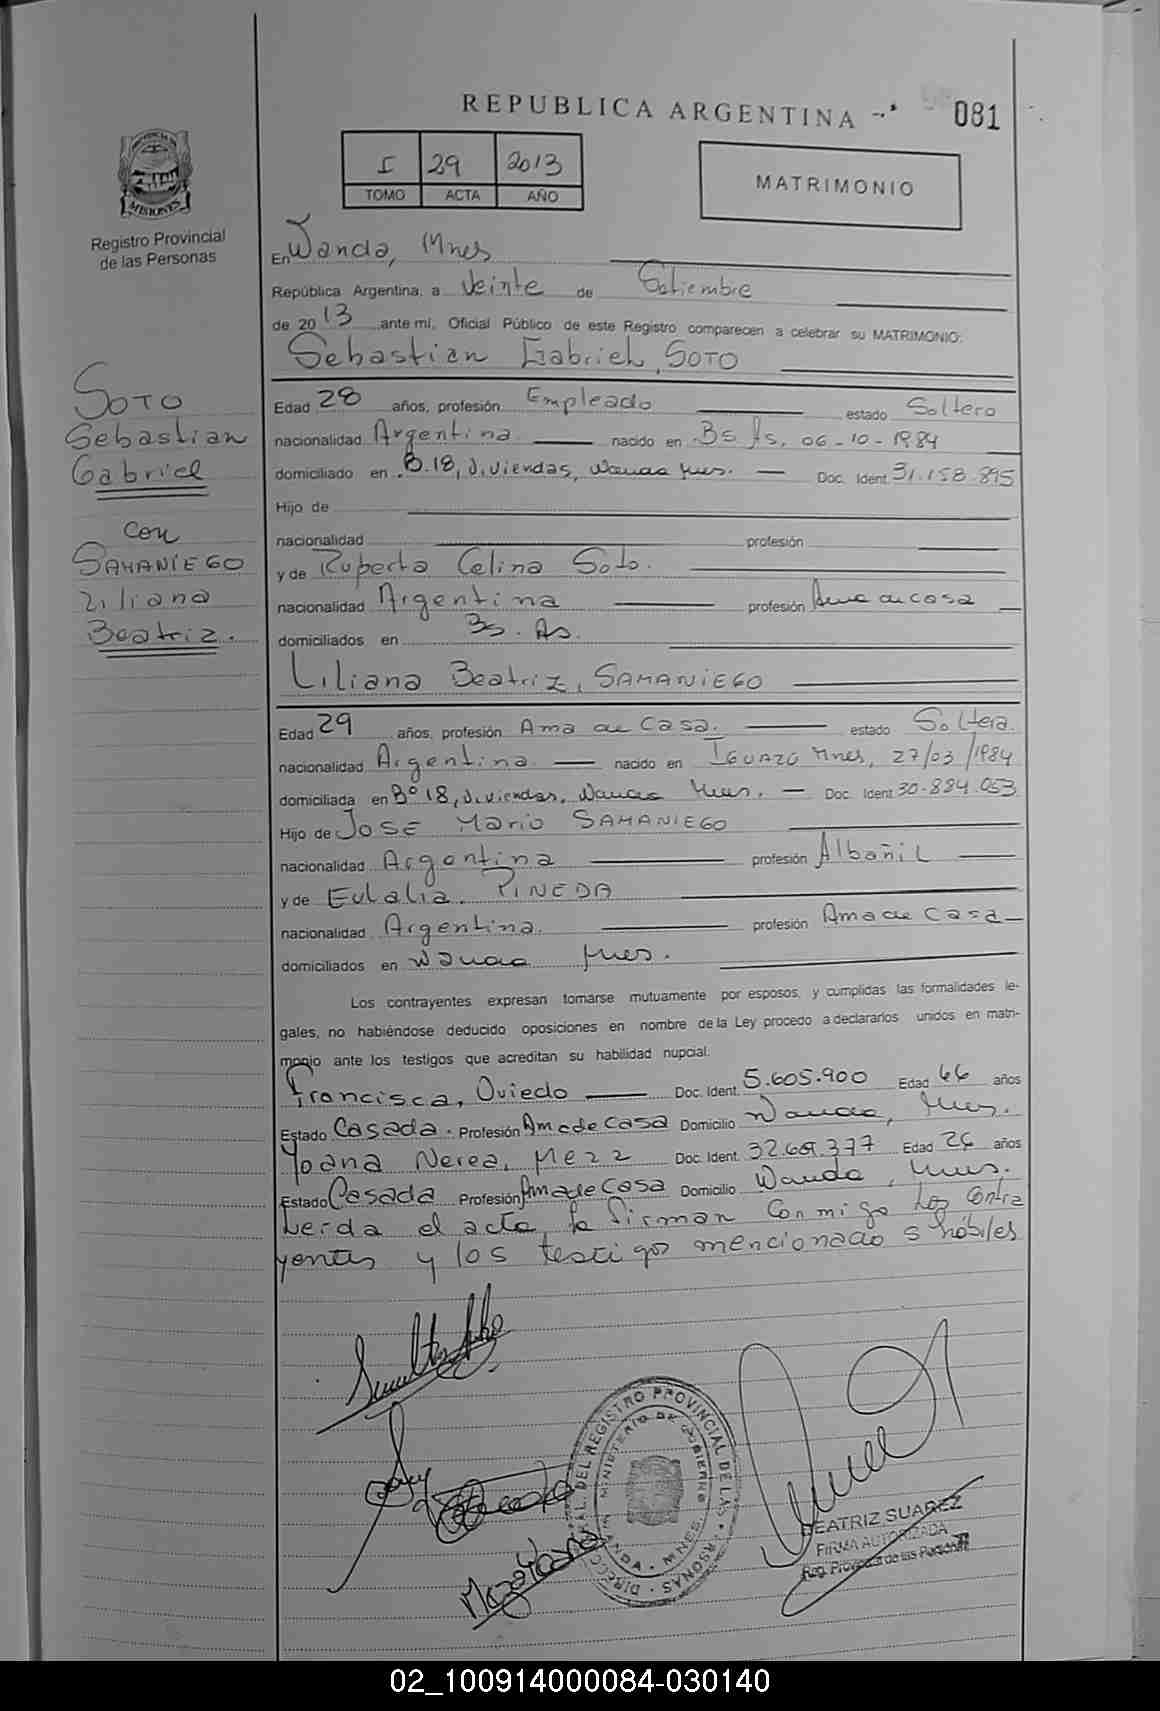 REPUBLICA ARGENTINA
081
I 29 2013
TOMO ACTA AÑO
MATRIMONIO
PROVINCIA DE
MISIONES
Registro Provincial
de las Personas
En Wanda, Mnes
República Argentina, a Veinte de Setiembre
de 2013 ante mí, Oficial Público de este Registro comparecen a celebrar su MATRIMONIO:
Sebastian Gabriel, SOTO
Edad 28 años, profesión Empleado estado Soltero
nacionalidad Argentina nacido en Bs. As. 06-10-1984
domiciliado en B.18, viviendas, Wanda Mnes. Doc. Ident. 31.158.895
Hijo de
nacionalidad profesión
y de Ruperta Celina Soto.
nacionalidad Argentina profesión Ama de casa
domiciliados en Bs. As.
Liliana Beatriz, SAMANIEGO
Edad 29 años, profesión Ama de Casa. estado Soltera.
nacionalidad Argentina nacido en IGUAZÚ Mnes, 27/03/1984
domiciliada en Bº 18, viviendas, Wanda Mnes. Doc. Ident. 30.884.053
Hijo de JOSE Mario SAMANIEGO
nacionalidad Argentina profesión Albañil
y de Eulalia. PINEDA
nacionalidad Argentina. profesión Ama de Casa
domiciliados en Wanda Mnes.
Los contrayentes expresan tomarse mutuamente por esposos, y cumplidas las formalidades le-
gales, no habiéndose deducido oposiciones en nombre de la Ley procedo a declararlos unidos en matri-
monio ante los testigos que acreditan su habilidad nupcial.
Francisca, Oviedo Doc. Ident. 5.605.900 Edad 66 años
Estado Casada. Profesión Ama de Casa Domicilio Wanda, Mnes.
Yoana Nerea, Mezz Doc. Ident. 32.669.377 Edad 26 años
Estado Casada Profesión Ama de Casa Domicilio Wanda, Mnes.
Leida el acta, la firman conmigo los contra
yentes y los testigos mencionado s hábiles
SOTO
Sebastian
Gabriel
con
SAMANIEGO
Liliana
Beatriz.
DIRECC. GRAL. DEL REGISTRO PROVINCIAL DE LAS PERSONAS
MINISTERIO DE GOBIERNO
WANDA - MNES.
BEATRIZ SUAREZ
FIRMA AUTORIZADA
Reg. Provincial de las Personas
02_100914000084-030140